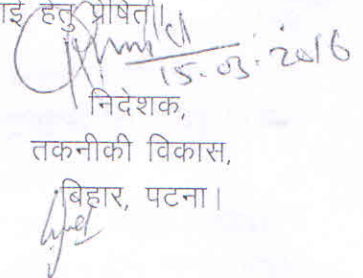 ाई हेतु प्रेषित।
15.03.2016
निदेशक,
तकनीकी विकास,
बिहार, पटना।